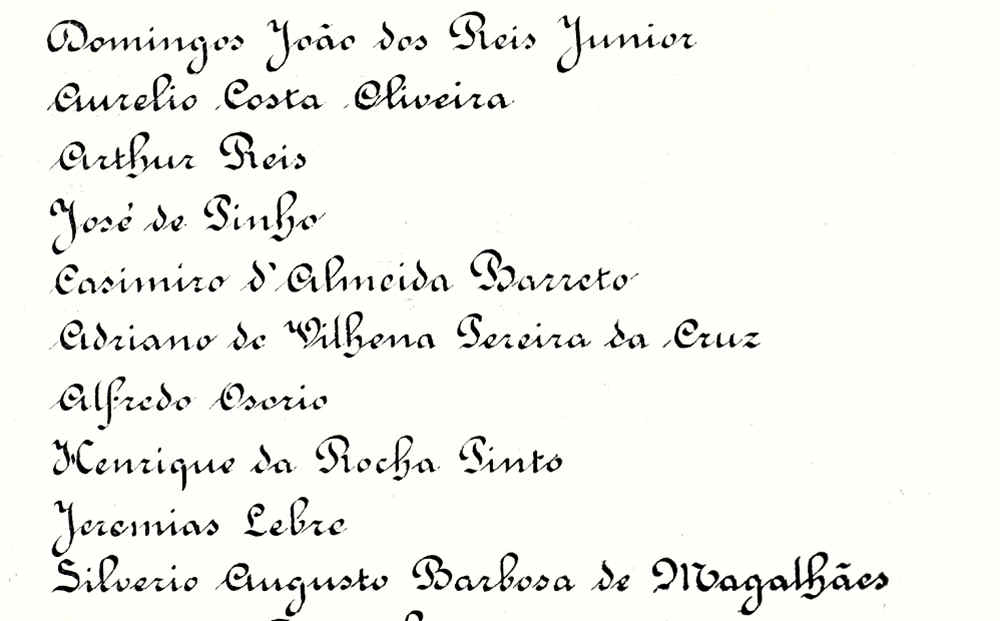 Domingos João dos Reis Junior
Aurelio Costa Oliveira
Arthur Reis
José de Pinho
Casimiro d'Almeida Barreto
Adriano de Vilhena Pereira da Cruz
Alfredo Osorio
Henrique da Rocha Pinto
Jeremias Lebre
Silverio Augusto Barbosa de Magalhães